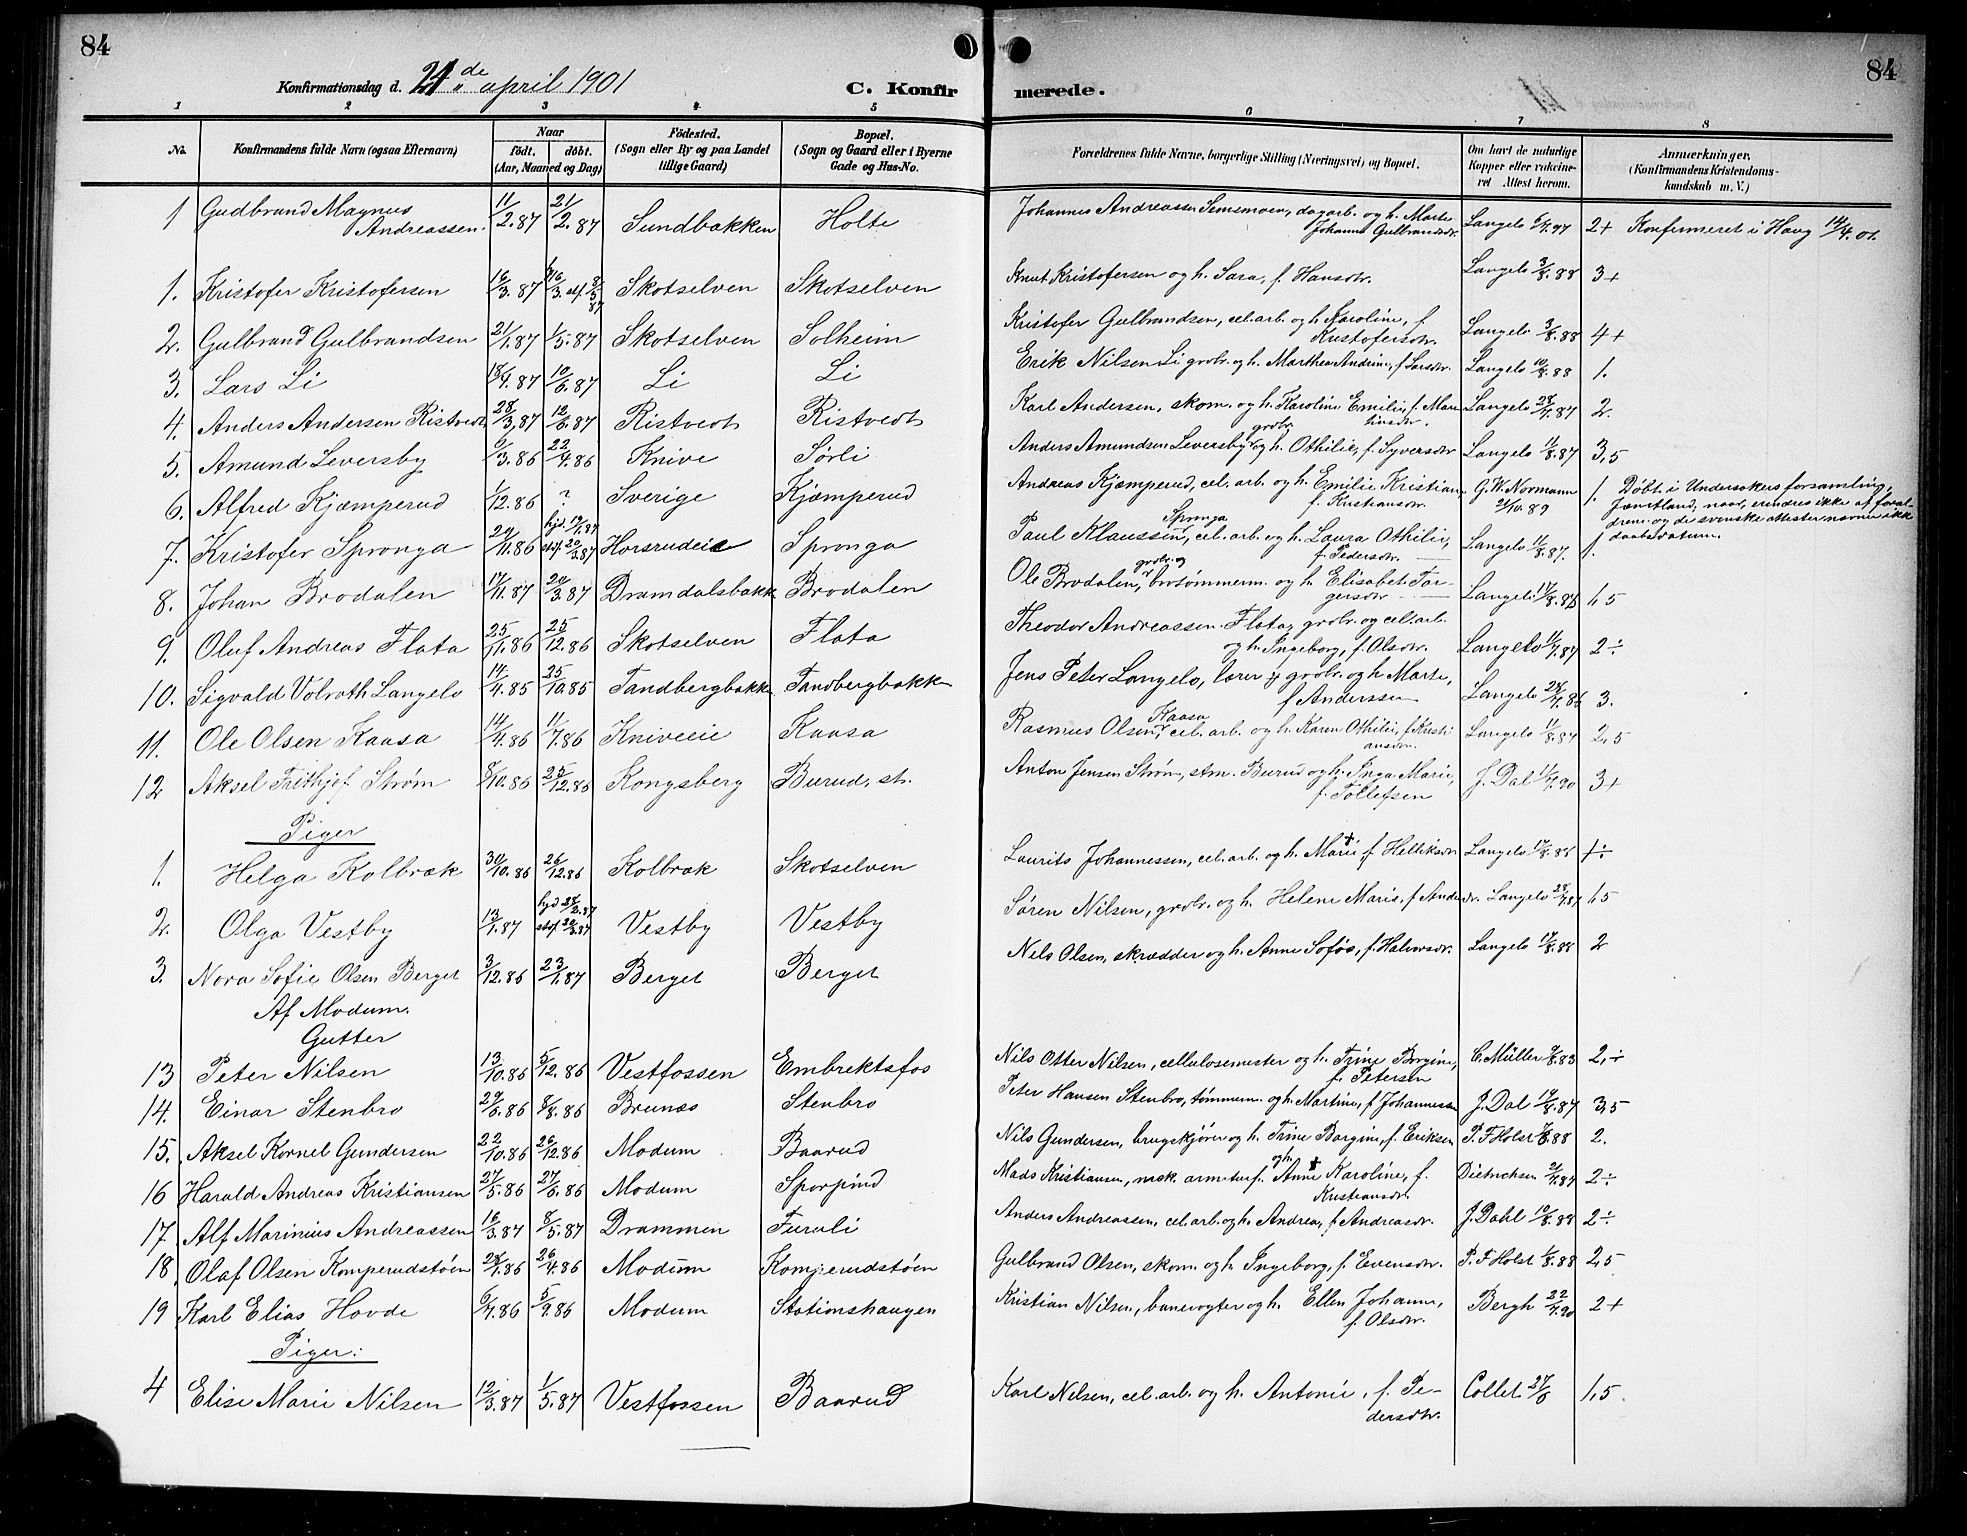 84
84
Konfirmationsdag d. 21de april 1901
C. Konfirmerede.
1 2 3 4 5 6 7 8
No. Konfirmandens fulde Navn (ogsaa Efternavn) Naar født. døbt. (Aar, Maaned og Dag) Fødested. (Sogn eller By og paa Landet tillige Gaard) Bopæl. (Sogn og Gaard eller i Byerne Gade og Hus-No. Forældrenes fulde Navne, borgerlige Stilling (Næringsvei) og Bopæl. Om havt de naturlige Kopper eller vakcineret Attest herom. Anmærkninger, (Konfirmandens Kristendomskundskab m. V.)
1 Gudbrand Magnus Andreassen. 11/2.87 21/2.87 Sundbakken Holte Johannes Andreassen Semsmoen, dagarb. og h. Marte Johanne Gulbrandsdr. Langelo 6/7.97 2+ Konfermeret i Haug 14/4.01.
1. Kristofer Kristofersen 16/3.87 16/3. stf. 87 Skotselven Skotselven Knut Kristofersen og h. Sara, f. Hansdtr. Langelo 3/8.88 3+
2. Gulbrand Gulbrandsen 21/1.87 1/5.87 Skotselven Solheim Kristofer Gulbrandsen, cel. arb. og h. Karoline, f. Kristofersdtr. Langelo 3/8.88 4+
3. Lars Li 18/4.87 10/6.87 Li Li Erik Nilsen Li grdbr. og h. Marthea Andrine, f Larsdtr. Langelo 10/8.88 1.
4. Anders Andersen Ristvedt 28/3.87 12/6.87 Ristvedt Ristvedt Karl Andersen, skom. og h. Karoline Emilie, f. Martinsdtr. Langelo 28/7.87 2.
5. Amund Leversby 9/3.86 22/4.86 Knive Sørli Anders Amundsen Leversby grdbr. og h. Othilie, f. Syversdtr Langelo 11/8.87 3,5
6. Alfred Kjæmperud 1/12.86 ? Sverige Kjæmperud Andreas Kjæmperud, cel. arb. og h. Emilie Kristian, f. Kristiansdtr. G. W. Normann 21/10.89 1. Døbt i Undersøkers forsamling, Jemtland, naar, erindres ikke af forældrene og de svenske attester nævne ikke daabsdatum.
7. Kristofer Spronga 24/11.86 hjd. 19/1.87 stf. 20/3.87 Horsrudeie Spronga Paul Klaussen Spronga, cel. arb. og h. Laura Othilie, f. Pedersdtr. Langelo 11/8.87. 1.
8. Johan Brodalen 17/11.87 20/3.87 Dramdalsbakk Brodalen Ole Brodalen, grdbr. og brotømmerm. og h. Elisabet Torgersdtr Langelo 17/8.88 1,5
9. Oluf Andreas Flata 25/11.86 25/12.86 Skotselven Flata Theodor Andreassen Flata, grdbr. og cel. arb. og h. Ingeborg, f. Olsdtr. Langelo 11/7.87 2÷
10. Sigvald Volrath Langelo 14/4.85 25/10.85 Tandbergbakk Tandbergbakk Jens Peter Langelo, lærer og grdbr. og h Marte, f Anderssen Langelo 28/7.86 3.
11. Ole Olsen Kaasa 14/4.86 11/7.86 Kniveeie Kaasa Rasmus Olsen Kaasa, cel. arb. og h. Karen Othilie, f. Kristiansdtr. Langelo 11/8.87 2,5
12 Aksel Frithjof Strøm 8/10.86 25/12.86 Kongsberg Burud, st. Anton Jensen Strøm, stm. Burud og h. Inga Marie, f. Tollefsen J. Dal 11/7.90 3+
Piger
1. Helga Kolbræk 30/10.86 26/12.86 Kolbræk Skotselven Laurits Johannessen, cel. arb. og h. Marie, f. Helliksdr Langelo 17/8.88 1÷
2. Olga Vestby 13/1.87 hjd 28/2.87 stf. 20/3.87 Vestby Vestby Søren Nilsen, grdbr. og h. Helene Marie, f Andersdr. Langelo 28/7.87 1,5
3. Nora Sofie Olsen Berget 3/12.86 23/1.87 Berget Berget Nils Olsen, skrædder og h. Anne Sofie, f. Halvorsdr. Langelo 17/8.88 2
Af Modum.
Gutter
13 Peter Nilsen 13/10.86 5/12.86 Vestfossen Embrektsfos Nils Otter Nilsen, cellulosemester og h. Trine Bergine, f. Petersen C. Müller 9/8.83 2,÷
14. Einar Stenbro 29/6.86 8/8.86 Brunæs Stenbro Peter Hansen Stenbro, tømmerm. og h. Martine, f Johannessen J. Dal 19/8.87 3,5
15. Aksel Kornel Gundersen 22/10.86 26/12.86 Modum Baarud Nils Gundersen, brugskjører og h. Trine Bargine, f. Eriksen P. F Holst 7/8.88 2.
16 Harald Andreas Kristiansen 27/5.86 27/6.86 Modum Sporpind Mads Kristiansen, og h. Anne Karoline, f. Kristiansdr. Dietrichsen 2/7.87 2÷
17. Alf Marinius Andreassen 16/3.87 8/5.87 Drammen Furuli Anders Andreassen, cel. arb. og h. Andrea, f Andreasdr. J. Dahl 10/8.88 2÷
18 Olaf Olsen Komperudstøen 28/1.86 26/4.86 Modum Komperudstøen Gulbrand Olsen, skom. og h. Ingeborg, f. Evensdr. P. F Holst 6/8.88 2,5
19 Karl Elias Hovde 6/7.86 5/9.86 Modum Stationshaugen Kristian Nilsen, banevogter og h. Ellen Johanne, f. Olsdtr. Bergh 22/7.90 2+
Piger:
4 Elise Marie Nilsen 12/3.87 1/5.87 Vestfossen Baarud Karl Nilsen, cel. arb. og h. Antonie, f. Pedersdtr. Collet 27/8 1,5.